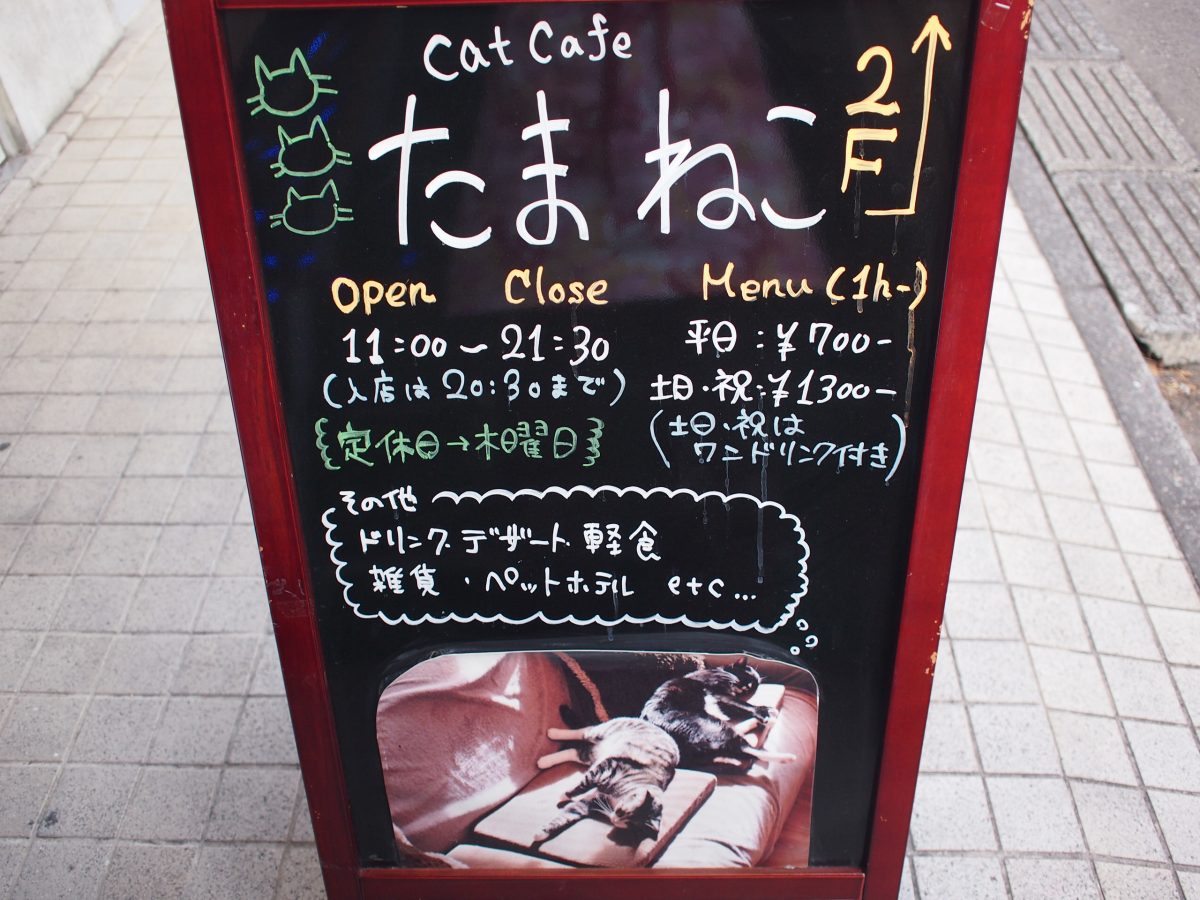 Cat Cafe
たまねこ
2F
Open Close
11:00~21:30
(入店は20:30まで)
定休日→木曜日
Menu (1h-)
平日:¥700-
土日・祝:¥1300-
(土日・祝は
ワンドリンク付き)
その他
ドリンク デザート 軽食
雑貨・ペットホテル etc...